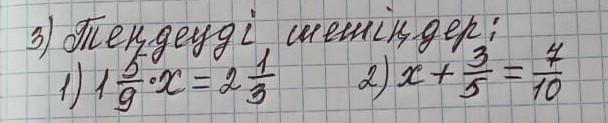 3) Теңдеуді шешіңдер:
1) 1 5/9 · x = 2 1/3 2) x + 3/5 = 7/10